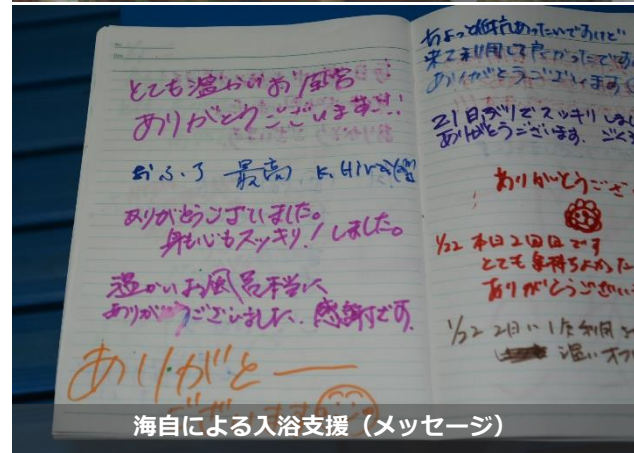 とても温かいお風呂
ありがとうございます!!
おふろ 最高 K.Hira
ありがとうございました。
身も心もスッキリ!しました。
温かいお風呂本当に
ありがとうございました。感謝です。
ありがとー
ございます
ちょっと抵抗あったいですけど
来て利用して良かったです
ありがとうございます
21日ぶりでスッキリしまし
ありがとうございます。ごくろ
ありがとうござ
1/22 本日2回目です
とても気持ちよかった
ありがとうござい
1/22 2日に1度利用
温い
海自による入浴支援(メッセージ)